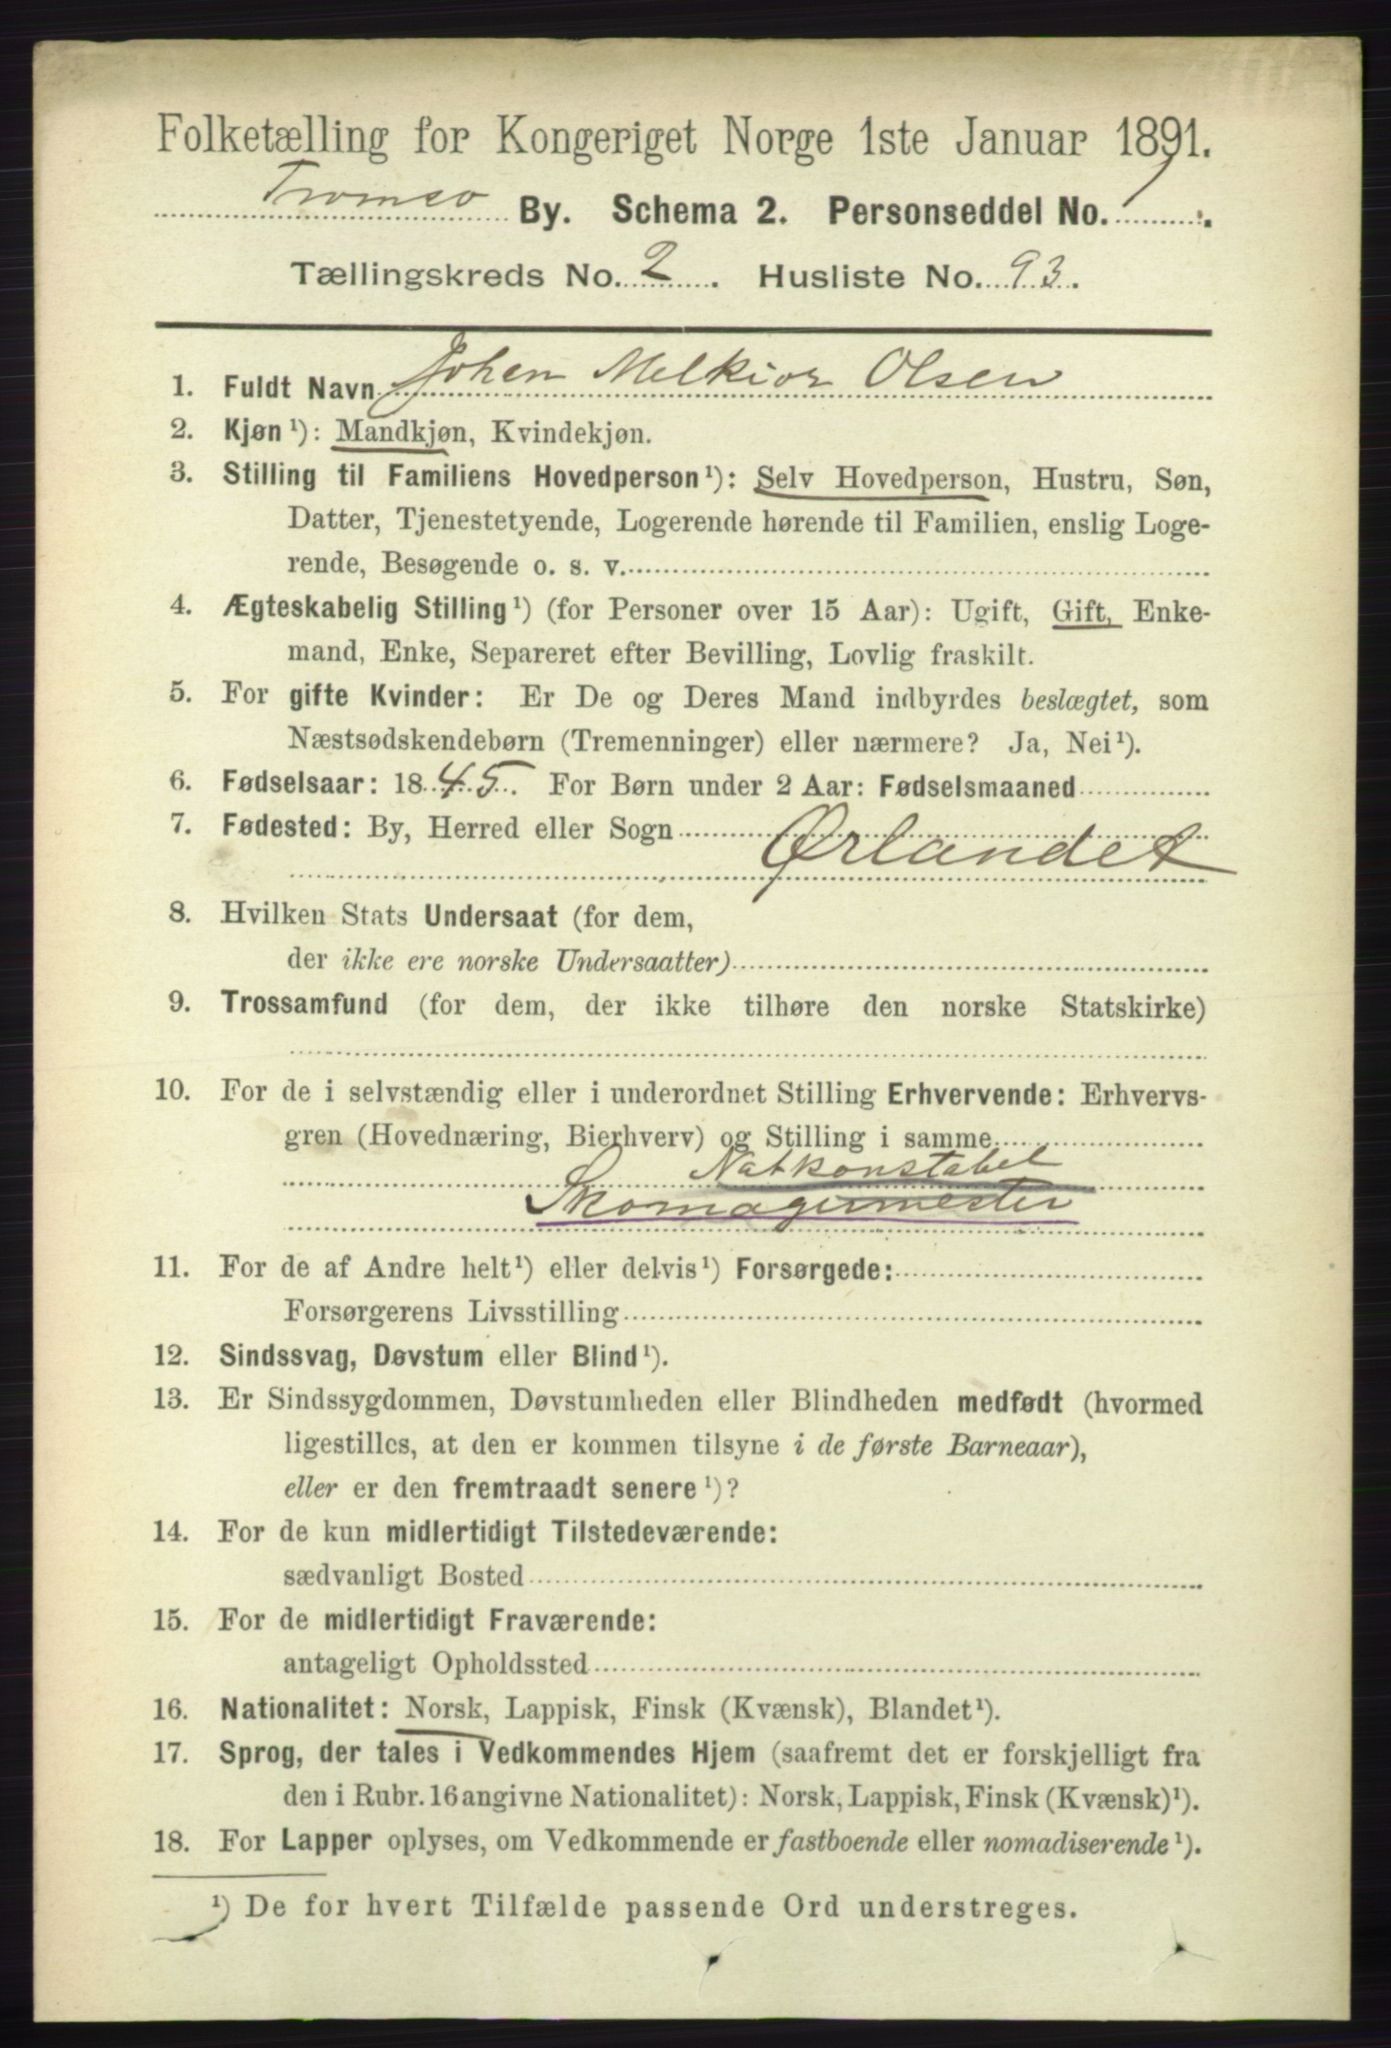 Folketælling for Kongeriget Norge 1ste Januar 1891.
Tromsø By. Schema 2. Personseddel No. 1.
Tællingskreds No. 2. Husliste No. 93.
1. Fuldt Navn Johan Melkior Olsen
2. Kjøn¹): Mandkjøn, Kvindekjøn.
3. Stilling til Familiens Hovedperson¹): Selv Hovedperson, Hustru, Søn,
Datter, Tjenestetyende, Logerende hørende til Familien, enslig Loge-
rende, Besøgende o. s. v.
4. Ægteskabelig Stilling¹) (for Personer over 15 Aar): Ugift, Gift, Enke-
mand, Enke, Separeret efter Bevilling, Lovlig fraskilt.
5. For gifte Kvinder: Er De og Deres Mand indbyrdes beslægtet, som
Næstsødskendebørn (Tremenninger) eller nærmere? Ja, Nei¹).
6. Fødselsaar: 1845. For Børn under 2 Aar: Fødselsmaaned
7. Fødested: By, Herred eller Sogn
Ørlandet
8. Hvilken Stats Undersaat (for dem,
der ikke ere norske Undersaatter)
9. Trossamfund (for dem, der ikke tilhøre den norske Statskirke)
10. For de i selvstændig eller i underordnet Stilling Erhvervende: Erhvervs-
gren (Hovednæring, Bierhverv) og Stilling i samme
Natkonstabel
Skomagermester
11. For de af Andre helt¹) eller delvis¹) Forsørgede:
Forsørgerens Livsstilling
12. Sindssvag, Døvstum eller Blind¹).
13. Er Sindssygdommen, Døvstumheden eller Blindheden medfødt (hvormed
ligestilles, at den er kommen tilsyne i de første Barneaar),
eller er den fremtraadt senere¹)?
14. For de kun midlertidigt Tilstedeværende:
sædvanligt Bosted
15. For de midlertidigt Fraværende:
antageligt Opholdssted
16. Nationalitet: Norsk, Lappisk, Finsk (Kvænsk), Blandet¹).
17. Sprog, der tales i Vedkommendes Hjem (saafremt det er forskjelligt fra
den i Rubr. 16 angivne Nationalitet): Norsk, Lappisk, Finsk (Kvænsk)¹).
18. For Lapper oplyses, om Vedkommende er fastboende eller nomadiserende¹).
¹) De for hvert Tilfælde passende Ord understreges.